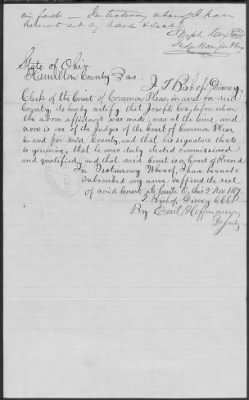 in fact — In testimony whereof I have
hereunto set my hand & seal
Joseph Cox
Judge Com Pleas
State of Ohio
Hamilton County } ss. I, T. Bishop Disney,
Clerk of the Court of Common Pleas, in and for said
County, do hereby certify that Joseph Cox, before whom
the above affidavit was made, was at the time, and
now is one of the Judges of the Court of Common Pleas,
in and for said County, and that his signature thereto
is genuine, that he was duly elected commissioned
and qualified, and that said Court is a Court of Record
In Testimony Whereof, I have hereunto
subscribed my name & affixed the seal
of said Court, at O, this 2 Nov 18
T. Bishop Disney Clk
By Carl Hoffmann
Deputy